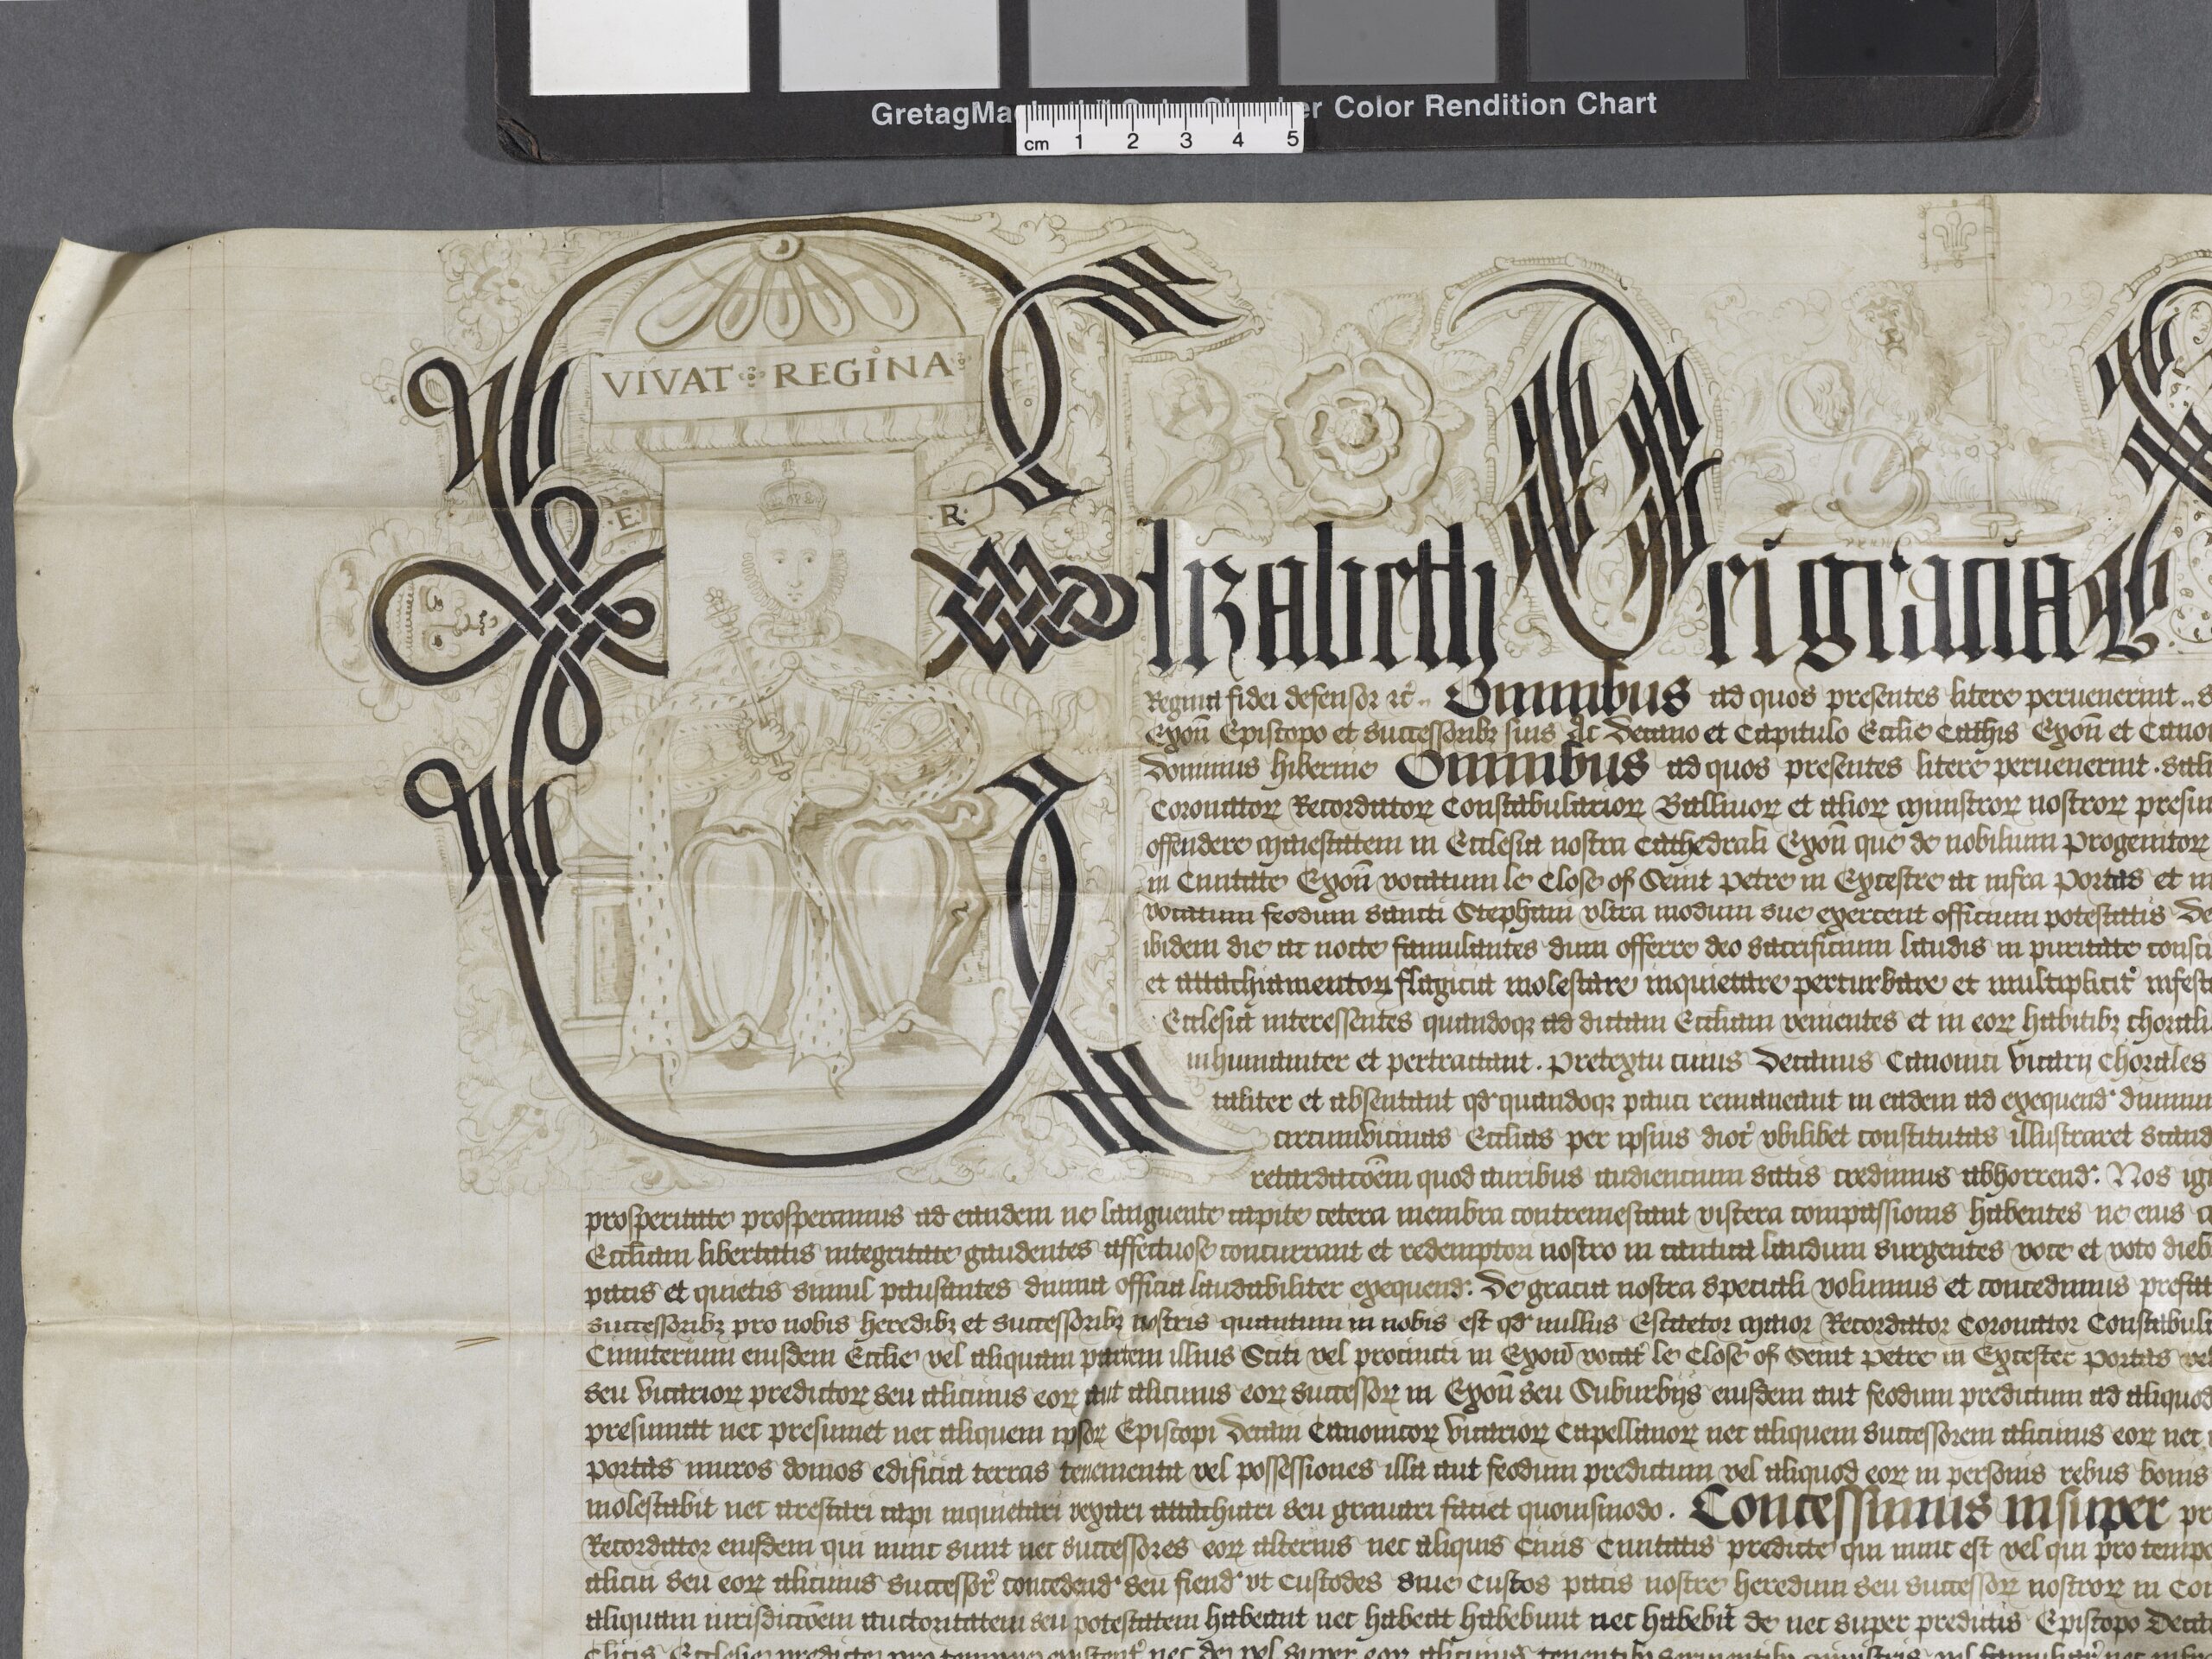 GretagMac Color Rendition Chart
cm 1 2 3 4 5
VIVAT REGINA
·E· ·R·
Elizabeth Dei gracia
Regina fidei defensor &c̃ Omnibus ad quos presentes litere peruenerint
Exoñ Episcopo et successoribȝ suis Ac Decano et Capitulo Ecclie Cathis Exoñ et Canon
Dominus hibernie Omnibus ad quos presentes litere peruenerint. salt
Coronatoꝝ Recordatoꝝ Constabularioꝝ Balliuoꝝ et alioꝝ ministroꝝ nostroꝝ presu
offendere maiestatem in Ecclesia nostra Cathedrali Exoñ que de nobilium Progenitoꝝ
in Ciuitate Exoñ vocatum le Close of Seint Petre in Excestre ac infra Portas et m
vocatum feodum sancti Stephani vltra modum sue exercent officium potestatis De
ibidem die ac nocte famulantes dum offerre deo sacrificium laudis in puritate consci
et attachiamentoꝝ flagicia molestare inquietare perturbare et multiplicit᾽ infest
Ecclesia interessentes quandoqꝫ ad dictam Eccliam venientes et in eoꝝ habitibȝ chorali
inhumaniter et pertractant. Pretextu cuius Decanus Canonici vicarij Chorales
taliter et absentant qd quandoqꝫ pauci remaneant in eadem ad exequend᾽ diuin
circumvicinas Ecclias per ipsius dioc᾽ vbilibet constitutas illustraret scand
retardacõem quod auribus audiencium satis credimus abhorrend᾽. Nos igi
prosperitate prosperamus ad eandem ne languente capite cetera membra contremescant viscera compassionis habentes ne eius
Eccliam libertatis integritate gaudentes affectuose concurrant et redemptori nostro in cantica laudum surgentes voce et voto dieb
pacis et quietis simul pausantes diuina officia laudabiliter exequend᾽. De gracia nostra speciali volumus et concedimus prefat
successoribȝ pro nobis heredibȝ et successoribȝ nostris quantum in nobis est qd nullus Escaetor Maior Recordator Coronator Constabul
Cimiterium eiusdem Ecclie vel aliquam partem illius Sciti vel procincti in Exoñ vocat᾽ le Close of Seint Petre in Excester Portas vel
seu vicarioꝝ predictoꝝ seu alicuius eoꝝ aut alicuius eoꝝ successoꝝ in Exoñ seu Suburbijs eiusdem aut feodum predictum ad aliquod
presumat nec presumet nec aliquem ipsoꝝ Episcopi Decani Canonicoꝝ vicarioꝝ Capellanoꝝ nec aliquem successorem alicuius eoꝝ nec
portas muros domos edificia terras tenementa vel possessiones illa aut feodum predictum vel aliquod eoꝝ in personis rebus bonis
molestabit nec arestari capi inquietari vexari attachiari seu grauari faciet quouismodo. Concessimus insuper pr
Recordator eiusdem qui nunc sunt nec successores eoꝝ alterius nec aliquis Ciuis Ciuitatis predicte qui nunc est vel qui pro tempo
alicui seu eoꝝ alicuius successor᾽ concedend᾽ seu fiend᾽ vt Custodes siue Custos pacis nostre heredum seu successoꝝ nostroꝝ in Co
aliquam iurisdiccõem auctoritatem seu potestatem habeant nec habeat habebunt nec habebit de nec super predictis Episcopo Deca
Ecclesie predicte pro tempore existent᾽ nec de vel super eoꝝ alicuius tenentibȝ seruientibȝ ministris vel familiar᾽ nec